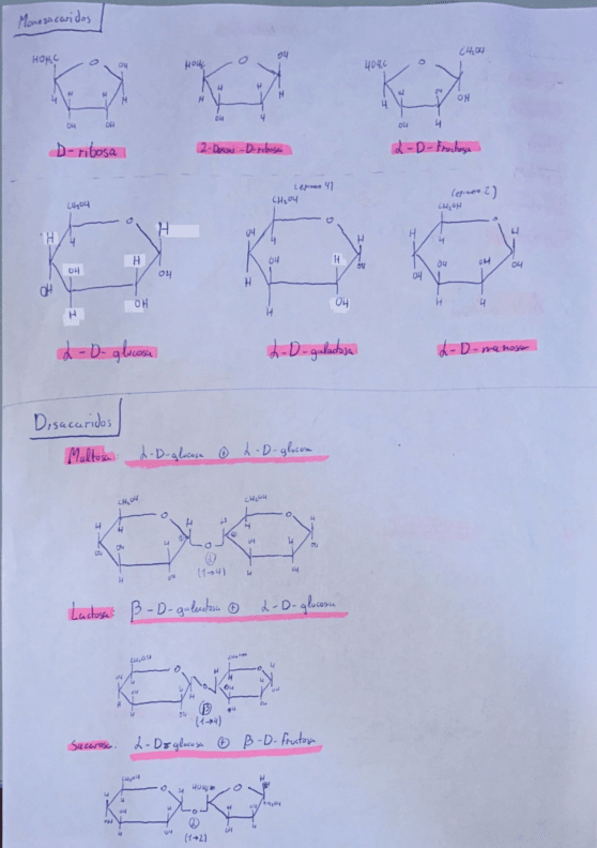 Monosacaridos
HOH₂C O OH
H H H H
OH OH
D-ribosa
HOH₂C O OH
H H H H
OH H
2-Desoxi-D-ribosa
HOH₂C O CH₂OH
H H H OH
OH H
α-D-fructosa
CH₂OH
O
H H H
OH H
OH OH
H OH
α-D-glucosa
(epimero 4)
CH₂OH
O
OH H H
OH H
H OH
H OH
α-D-galactosa
(epimero 2)
CH₂OH
O
H H H
OH OH
OH OH
H H
α-D-manosa
Disacaridos
Maltosa: α-D-glucosa ⊕ α-D-glucosa
CH₂OH CH₂OH
O O
O
α
(1→4)
Lactosa: β-D-galactosa ⊕ α-D-glucosa
O O
O
β
(1→4)
Sacarosa: α-D-glucosa ⊕ β-D-fructosa
CH₂OH
O O
O
α
(1→2)